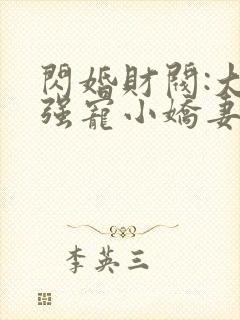 閃婚財閥:大
强寵小嬌妻
李英三